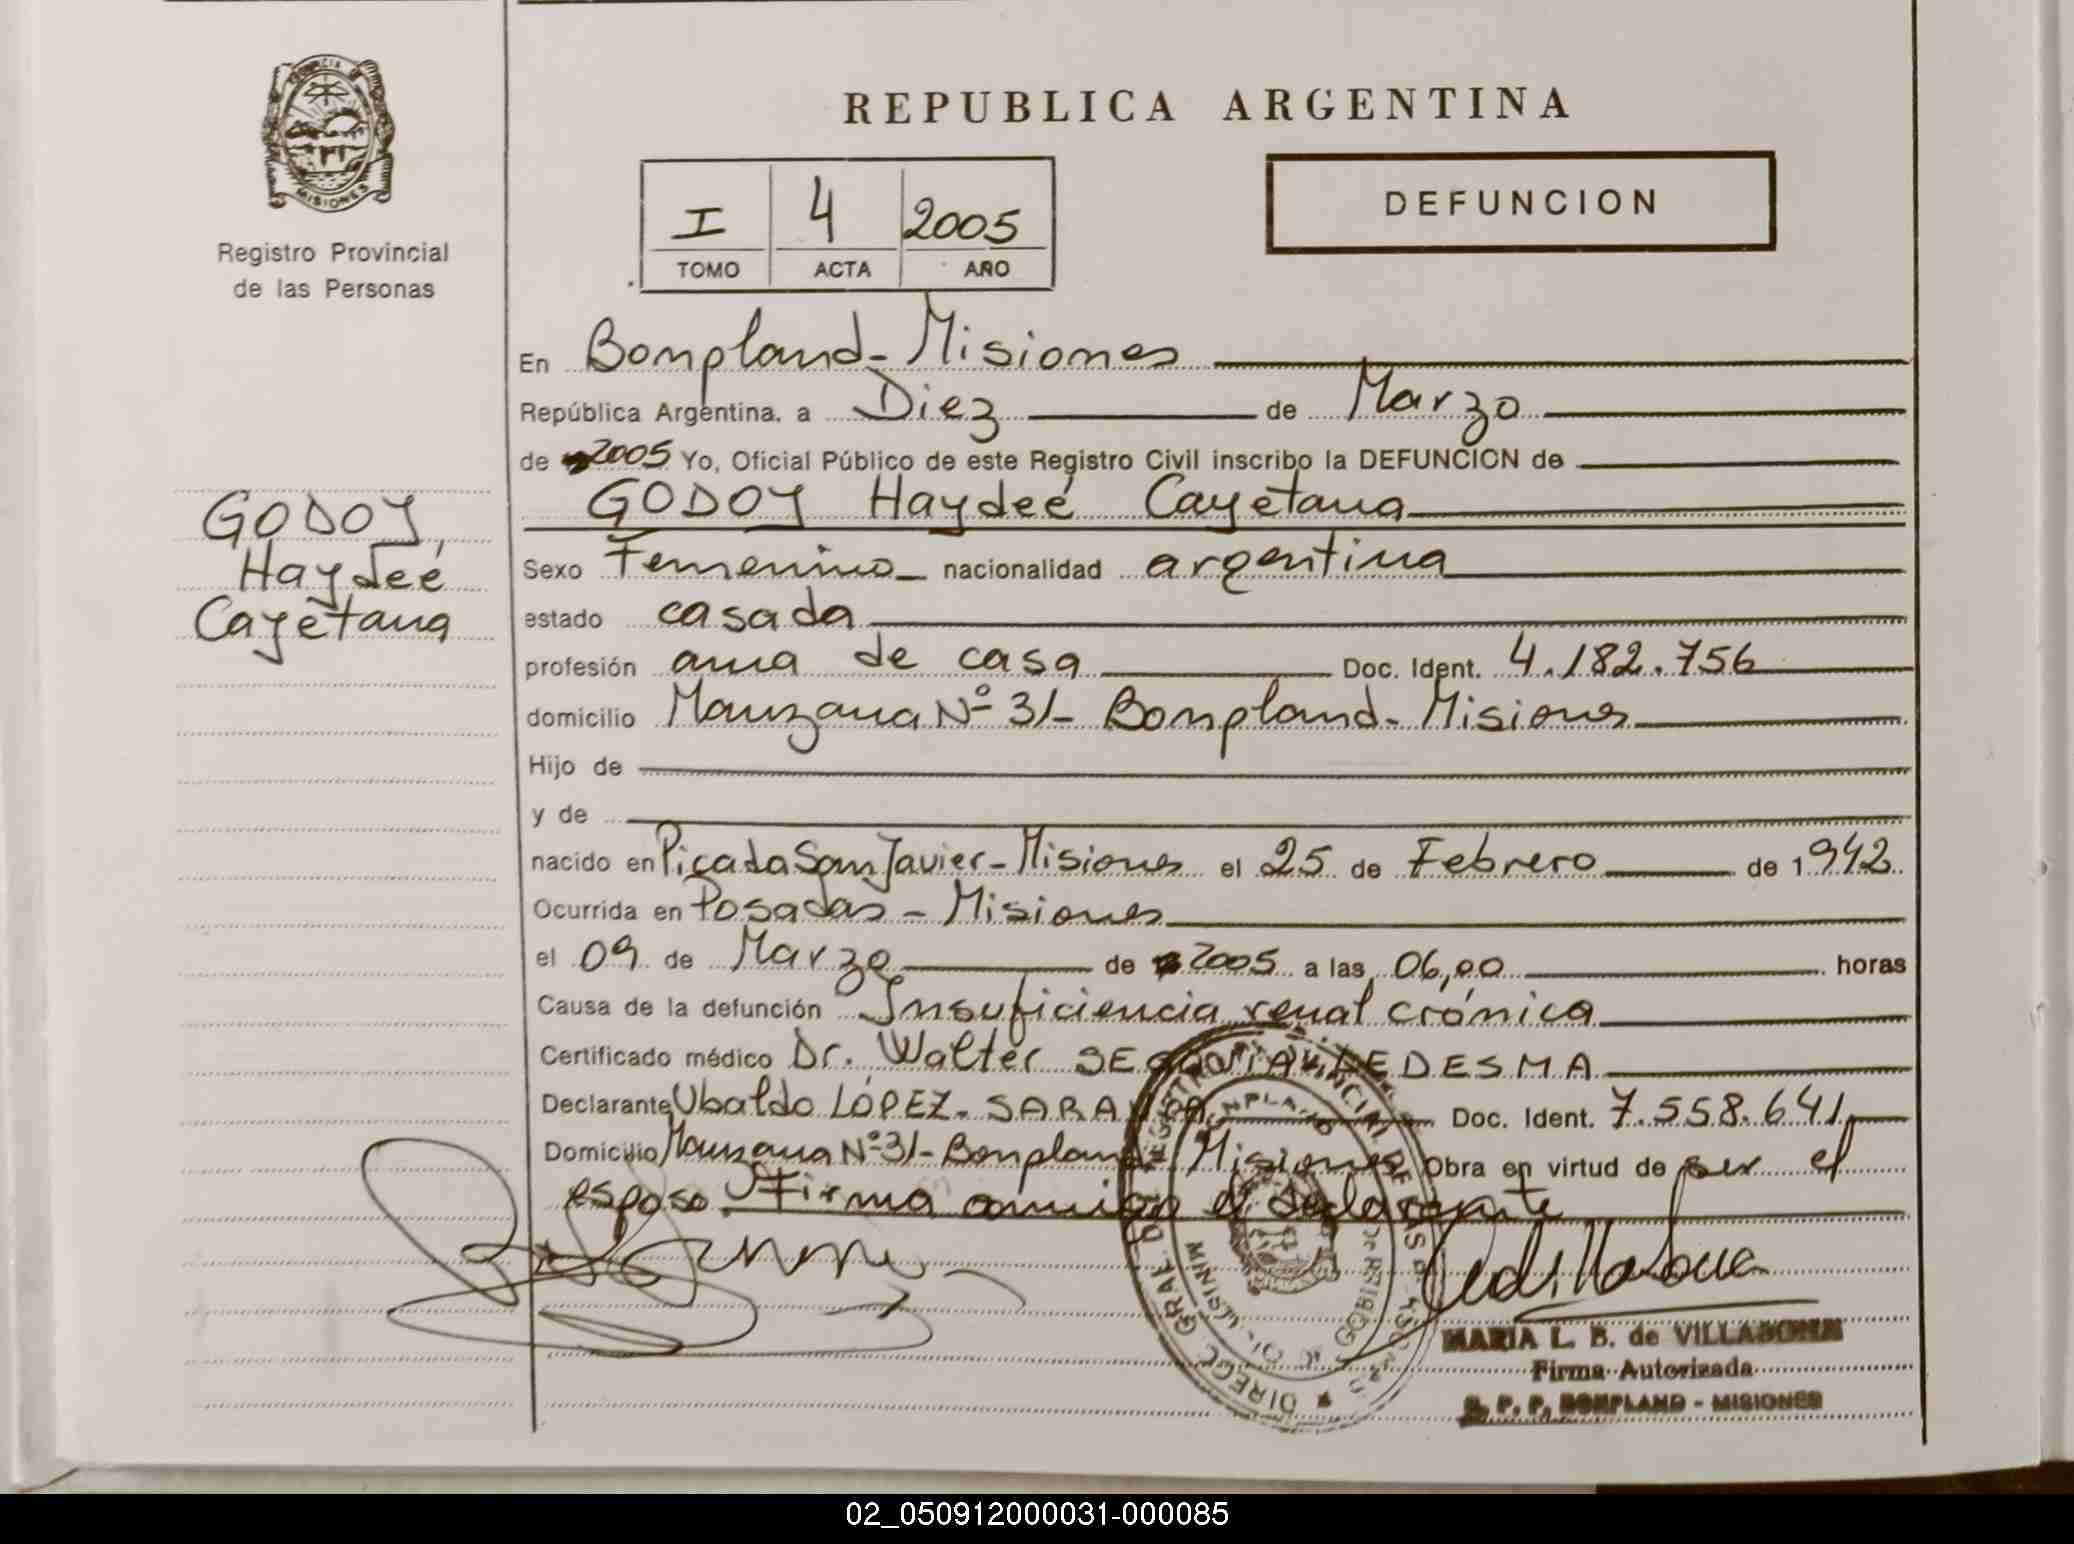 REPUBLICA ARGENTINA
PROVINCIA DE
MISIONES
Registro Provincial
de las Personas
I 4 2005
TOMO ACTA AÑO
DEFUNCION
En Bompland - Misiones
República Argentina, a Diez de Marzo
de 2005 Yo, Oficial Público de este Registro Civil inscribo la DEFUNCION de
GODOY Haydeé Cayetana
GODOY,
Haydeé
Cayetana
Sexo Femenino nacionalidad argentina
estado casada
profesión ama de casa Doc. Ident. 4.182.756
domicilio Manzana Nº 31- Bompland - Misiones
Hijo de
y de
nacido en Picada San Javier - Misiones el 25 de Febrero de 1942
Ocurrida en Posadas - Misiones
el 09 de Marzo de 2005 a las 06,00 horas
Causa de la defunción Insuficiencia renal crónica
Certificado médico Dr. Walter SEGOVIA LEDESMA
Declarante Ubaldo LÓPEZ - Doc. Ident. 7.558.641
Domicilio Manzana Nº 31- Bompland - Misiones Obra en virtud de ser el
esposo Firma conmigo el declarante
MARIA L. B. de VILLABONA
Firma Autorizada
R. P. P. BOMPLAND - MISIONES
02_050912000031-000085